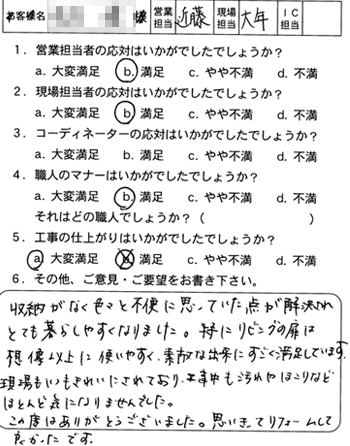 お客様名 様 営業担当 近藤 現場担当 大年 IC担当
1．営業担当者の応対はいかがでしたでしょうか？
a. 大変満足 b. 満足 c. やや不満 d. 不満
2．現場担当者の応対はいかがでしたでしょうか？
a. 大変満足 b. 満足 c. やや不満 d. 不満
3．コーディネーターの応対はいかがでしたでしょうか？
a. 大変満足 b. 満足 c. やや不満 d. 不満
4．職人のマナーはいかがでしたでしょうか？
a. 大変満足 b. 満足 c. やや不満 d. 不満
それはどの職人でしょうか？（ ）
5．工事の仕上がりはいかがでしたでしょうか？
a. 大変満足 b. 満足 c. やや不満 d. 不満
6．その他、ご意見・ご要望をお書き下さい。
収納がなく色々と不便に思っていた点が解決され
とても暮らしやすくなりました。特にリビングの扉は
想像以上に使いやすく、素敵な出来にすごく満足しています。
現場もいつもきれいにされており、工事中も汚れやほこりなど
ほとんど気になりませんでした。
この度はありがとうございました。思いきってリフォームして
良かったです。